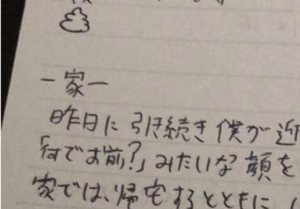 一家一
昨日に引き続き僕が近
「何でお前?」みたいな顔を
家では、帰宅するとともに、